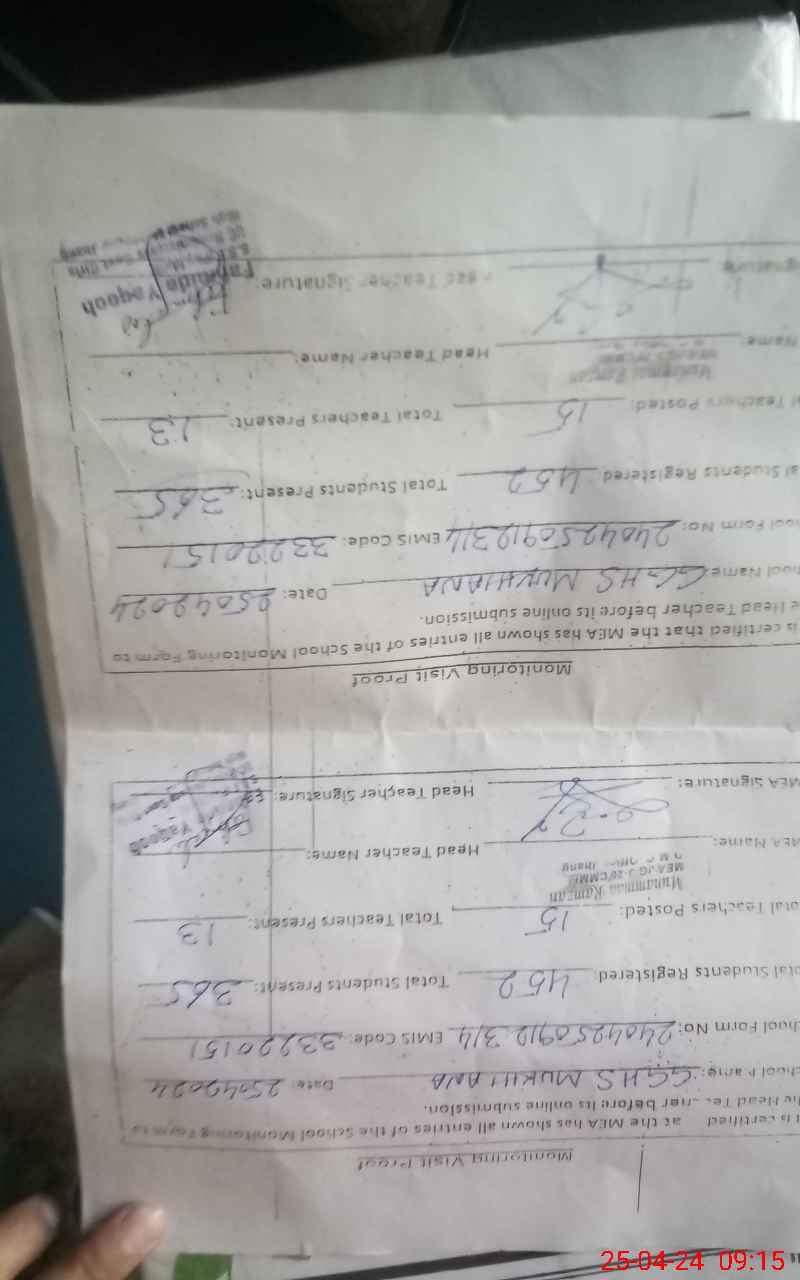 Monitoring Visit Proof
t is certified at the MEA has shown all entries of the School Monitoring Form to
he Head Teacher before its online submission.
chool Name: GGHS MUKHIANA Date: 25042024
chool Form No: 2404250912314 EMIS Code: 33220151
otal Students Registered: 452 Total Students Present: 365
otal Teachers Posted: 15 Total Teachers Present: 13
MEA Name: Muhammad Ramzan Head Teacher Name:
MEA Signature: Head Teacher Signature:
Monitoring Visit Proof
is certified that the MEA has shown all entries of the School Monitoring Form to
e Head Teacher before its online submission.
hool Name: GGHS MUKHIANA Date: 25042024
hool Form No: 2404250912314 EMIS Code: 33220151
al Students Registered: 452 Total Students Present: 365
al Teachers Posted: 15 Total Teachers Present: 13
Name: Muhammad Ramzan Head Teacher Name:
ignature Head Teacher Signature: Fahmida Yaqoob
25-04-24 09:15